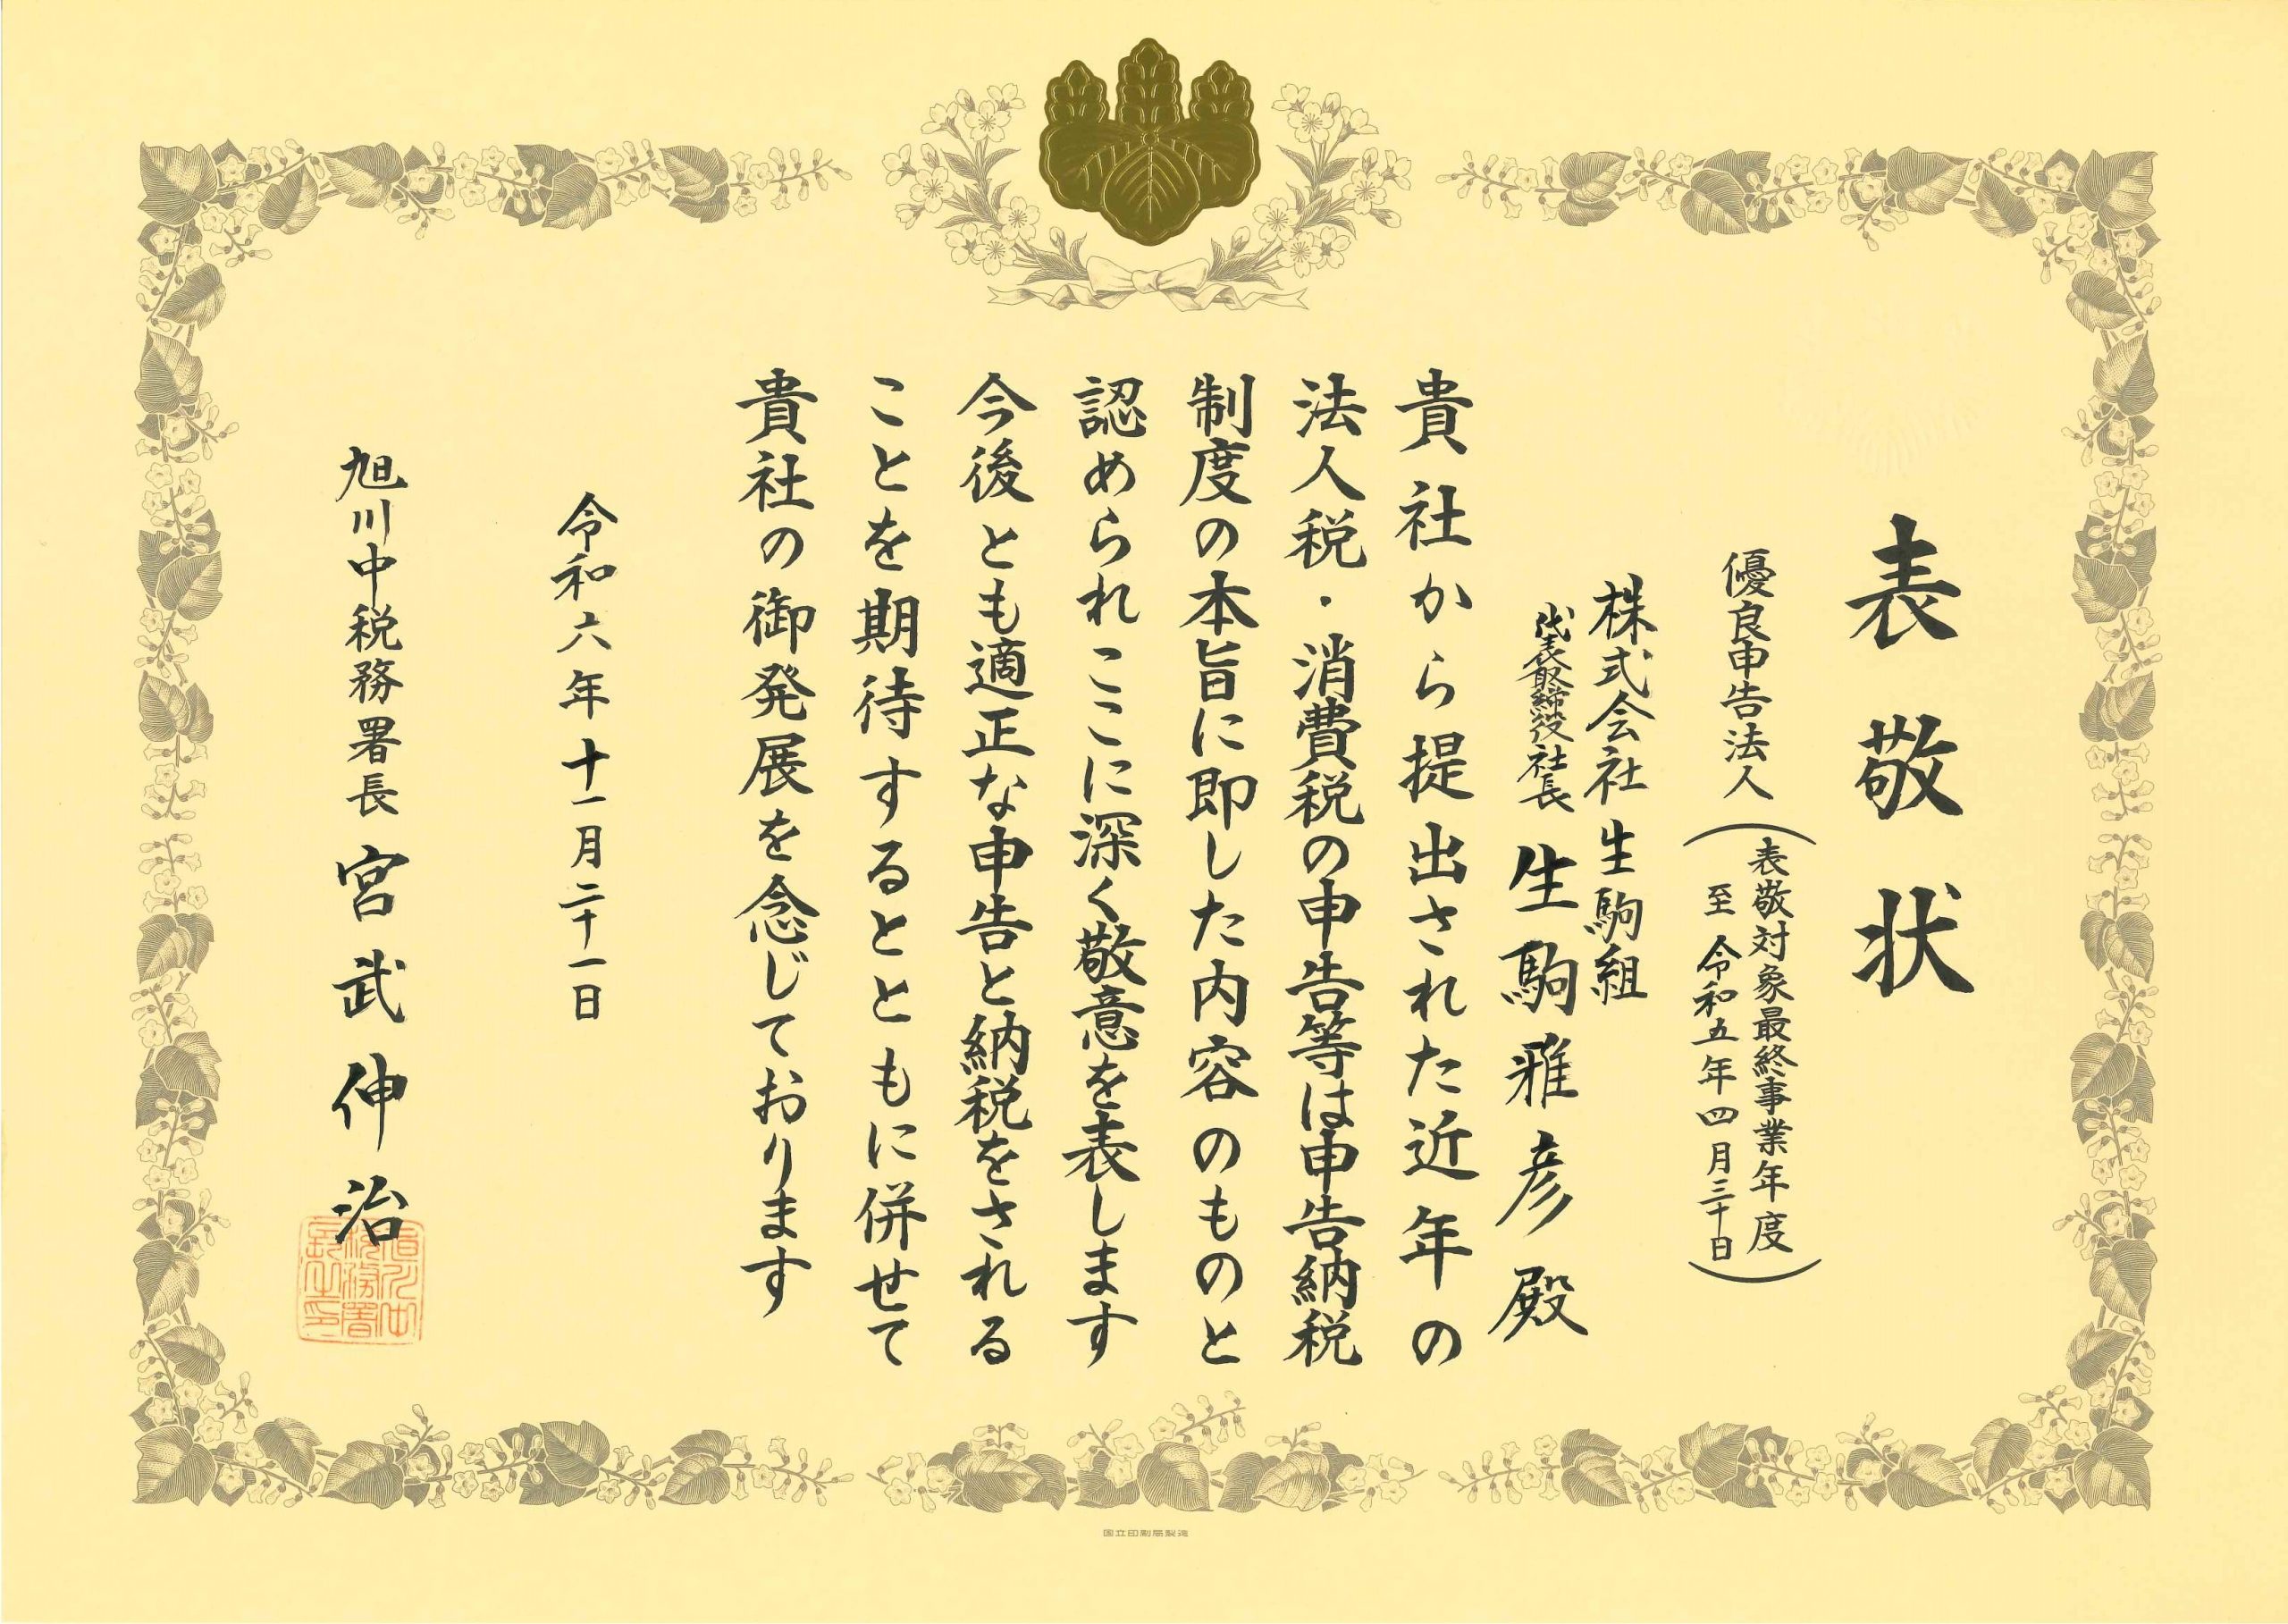 表敬状
優良申告法人
(表敬対象最終事業年度
至 令和五年四月三十日)
株式会社 生駒組
代表取締役社長 生駒雅彦殿
貴社から提出された近年の
法人税・消費税の申告等は申告納税
制度の本旨に即した内容のものと
認められここに深く敬意を表します
今後とも適正な申告と納税をされる
ことを期待するとともに併せて
貴社の御発展を念じております
令和六年十一月二十一日
旭川中税務署長 宮武伸治
旭川中
税務署
長之印
国立印刷局製造